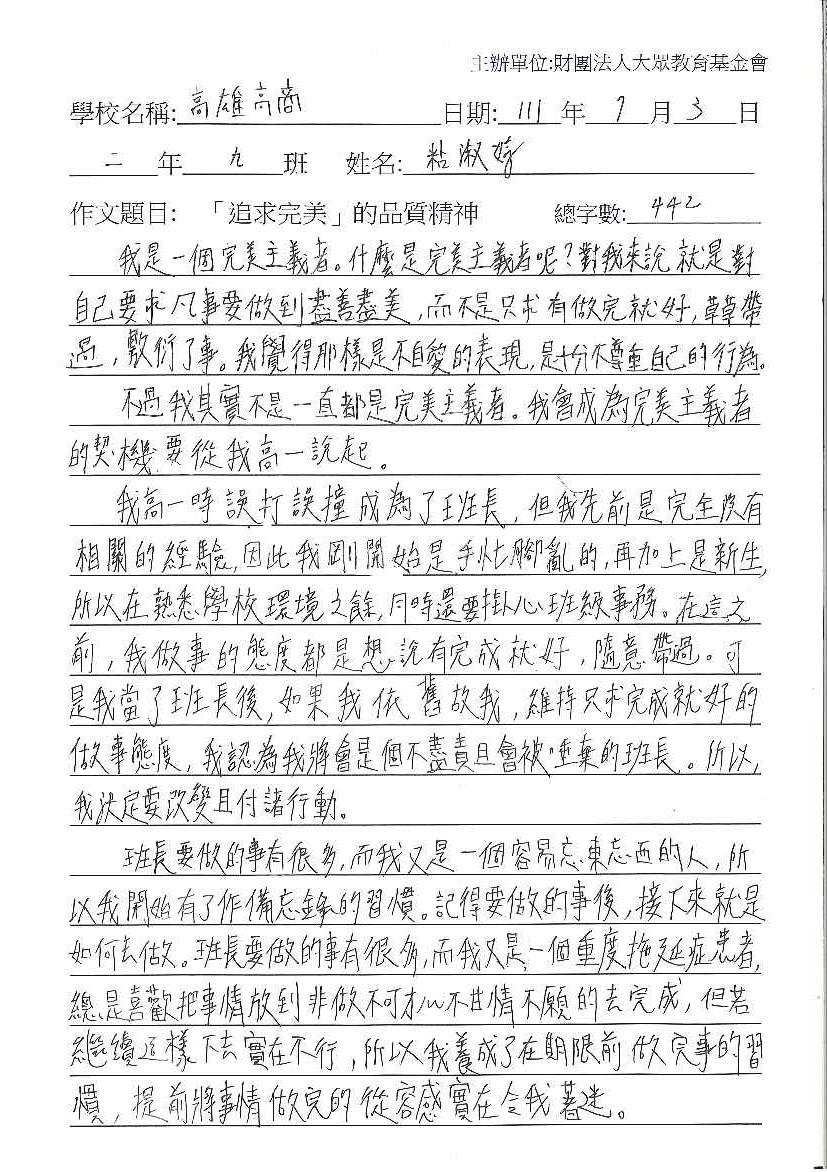 主辦單位:財團法人大眾教育基金會
學校名稱:高雄高商 日期:111年7月3日
二年九班 姓名:粘淑婷
作文題目:「追求完美」的品質精神 總字數:442
我是一個完美主義者。什麼是完美主義者呢?對我來說就是對
自己要求凡事要做到盡善盡美,而不是只求有做完就好,草草帶
過,敷衍了事。我覺得那樣是不自愛的表現,是十分不尊重自己的行為。
不過我其實不是一直都是完美主義者。我會成為完美主義者
的契機要從我高一說起。
我高一時誤打誤撞成為了班長,但我先前是完全沒有
相關的經驗,因此我剛開始是手忙腳亂的,再加上是新生,
所以在熟悉學校環境之餘,同時還要掛心班級事務。在這之
前,我做事的態度都是想說有完成就好,隨意帶過。可
是我當了班長後,如果我依舊故我,維持只求完成就好的
做事態度,我認為我將會是個不盡責且會被唾棄的班長。所以,
我決定要改變且付諸行動。
班長要做的事有很多,而我又是一個容易忘東忘西的人,所
以我開始有了作備忘錄的習慣。記得要做的事後,接下來就是
如何去做。班長要做的事有很多,而我又是一個重度拖延症患者,
總是喜歡把事情放到非做不可才心不甘情不願的去完成,但若
繼續這樣下去實在不行,所以我養成了在期限前做完事的習
慣,提前將事情做完的從容感實在令我著迷。